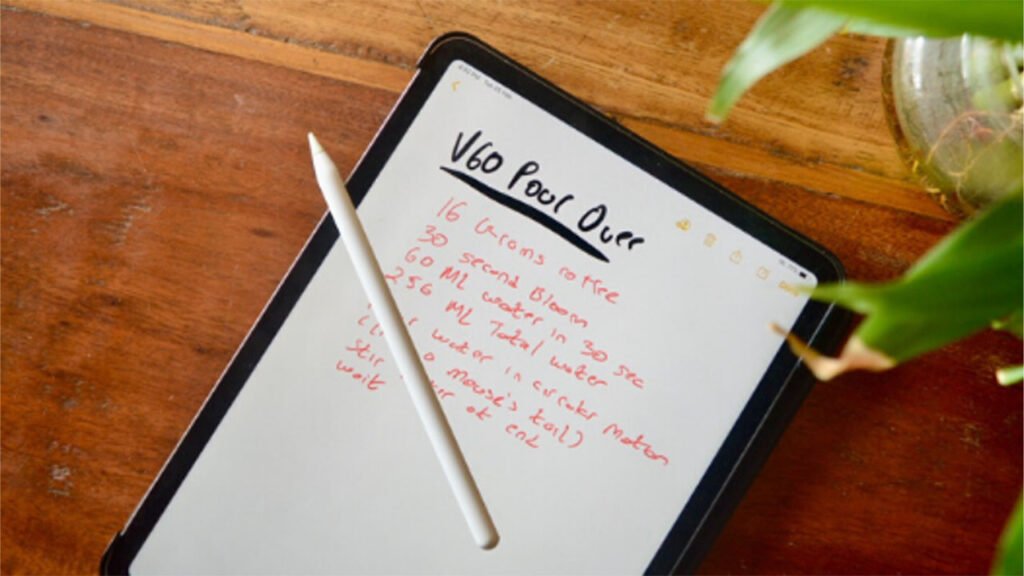 Done
V60 Pour Over
16 Grams coffee
30 second Bloom
60 ML water in 30 sec
256 ML Total water
water in circular motion
Stir mouse's tail)
wait at end